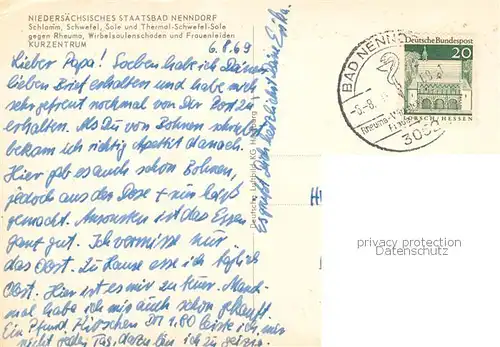 NIEDERSÄCHSISCHES STAATSBAD NENNDORF
Schlamm, Schwefel, Sole und Thermal-Schwefel-Sole
gegen Rheuma, Wirbelsäulenschäden und Frauenleiden
KURZENTRUM
6.8.69
Lieber Papa! Soeben habe ich Deinen
lieben Brief erhalten und habe mich
sehr gefreut nochmal von Dir Post zu
erhalten. Als Du von Bohnen schriebst
bekam ich richtig Apetit danach.
Hier gab es auch schon Bohnen,
jedoch aus der Dose + nur
gemacht. Ansonsten ist das Essen
ganz gut. Ich vermisse nur
das Obst. Zu Hause esse ich täglich
Obst. Hier ist es mir zu teuer. Manch-
mal habe ich mir auch schon gekauft.
Ein Pfund Kirschen DM 1.80 leiste ich mir
nicht jeden Tag, dazu bin ich zu geizig.
Es grüßt Dich herzlichst Deine
Deutsche Luftbild KG Hamburg
BAD NENNDORF
-6.-8.
Rheuma
3052
Deutsche Bundespost
20
LORSCH/HESSEN
privacy protection
Datenschutz